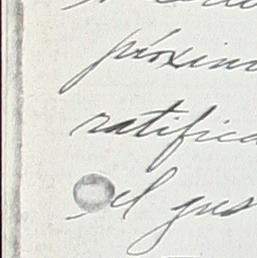 próxim
ratifica
el gus